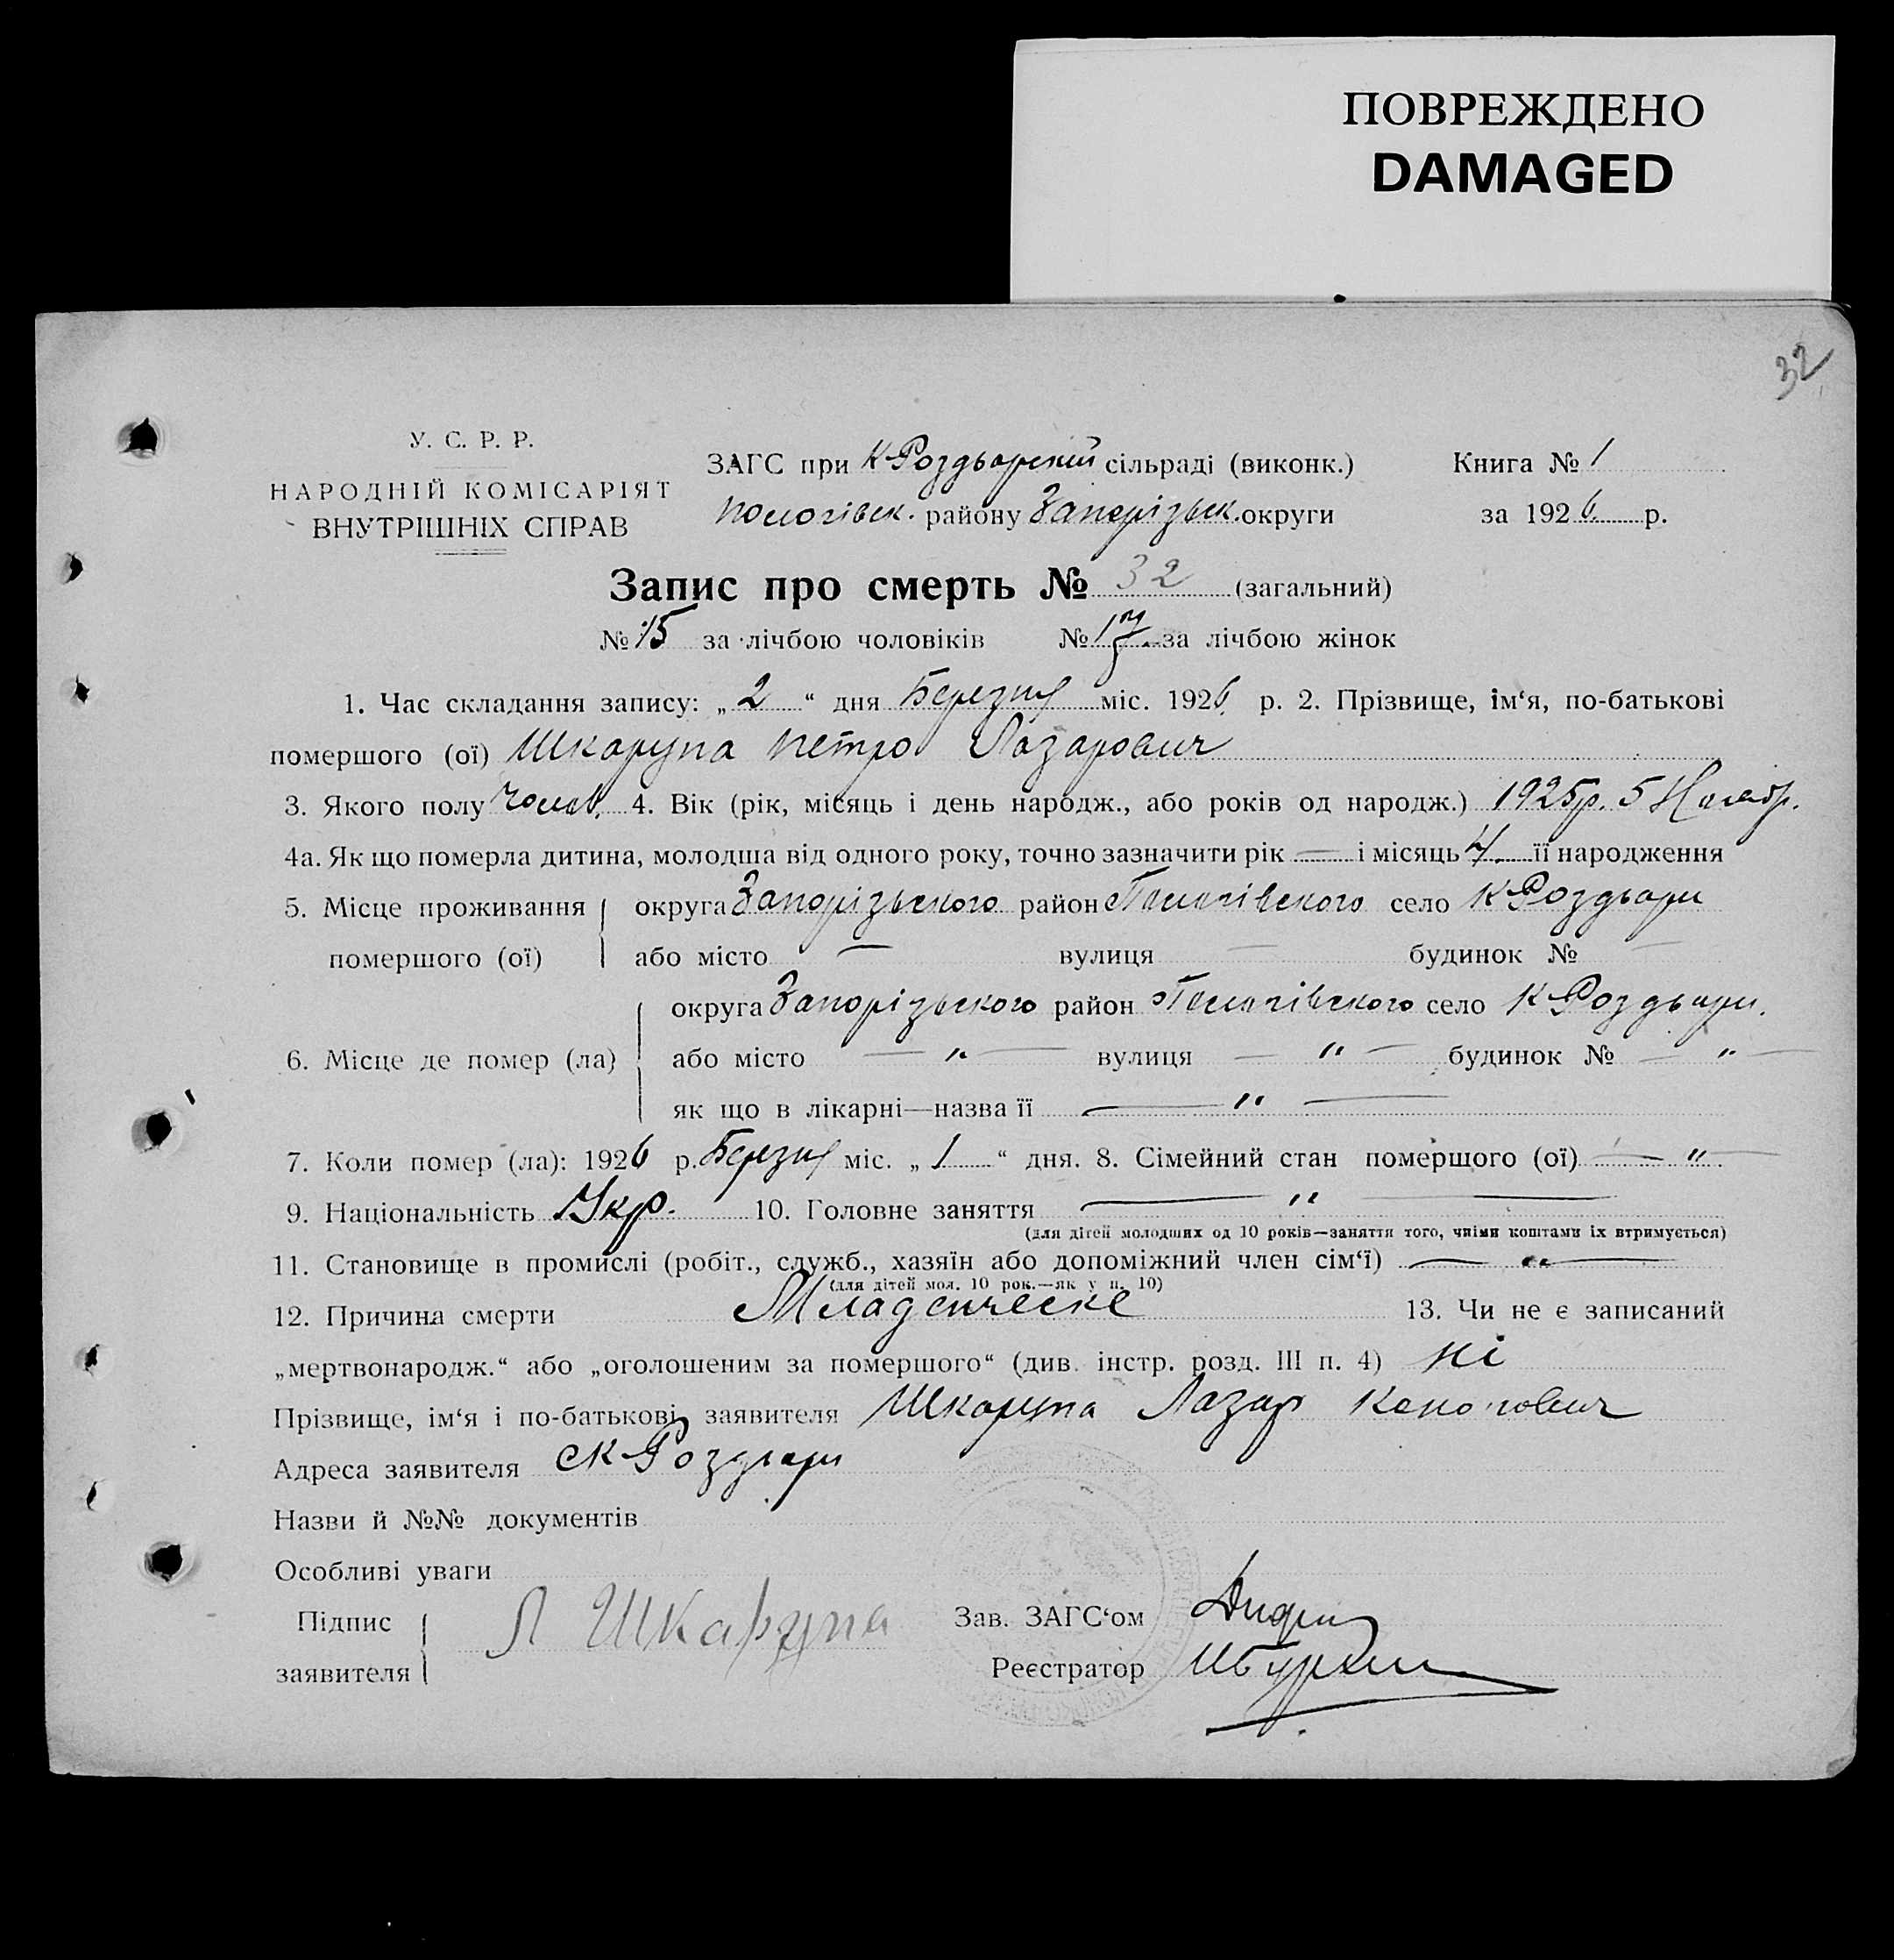 ПОВРЕЖДЕНО
DAMAGED
32
У. С. Р. Р.
НАРОДНІЙ КОМІСАРІЯТ
ВНУТРІШНІХ СПРАВ
ЗАГС при К Роздорский сільраді (виконк.)
Пологівск. району Запорізьк. округи
Книга № 1
за 1926 р.
Запис про смерть № 32 (загальний)
№ 15 за лічбою чоловіків № 17 за лічбою жінок
1. Час складання запису: „ 2 “ дня Березня міс. 1926 р. 2. Прізвище, ім‘я, по-батькові
помершого (ої) Шкарупа Петро Лазарович
3. Якого полу Чолов. 4. Вік (рік, місяць і день народж., або років од народж.) 1925 р. 5 Ноябр.
4а. Як що померла дитина, молодша від одного року, точно зазначити рік — і місяць 4. її народження
5. Місце проживання помершого (ої) округа Запорізьского район Пологівского село К Роздьори
або місто — вулиця — будинок № —
6. Місце де помер (ла) округа Запорізьского район Пологівского село К Роздьори.
або місто — „ — вулиця — „ — будинок № — „ —
як що в лікарні—назва її — „ —
7. Коли помер (ла): 1926 р. Березня міс. „ 1 “ дня. 8. Сімейний стан помершого (ої) — „ —
9. Національність Укр. 10. Головне заняття — „ —
(для дітей молодших од 10 років—заняття того, чиїми коштами їх втримується)
11. Становище в промислі (робіт., служб., хазяїн або допоміжний член сім‘ї) — „ —
(для дітей мол. 10 рок.—як у п. 10)
12. Причина смерти Младенческе 13. Чи не є записаний
„мертвонародж.“ або „оголошеним за помершого“ (див. інстр. розд. III п. 4) ні
Прізвище, ім‘я і по-батькові заявителя Шкарупа Лазар
Адреса заявителя с К Роздьори
Назви й №№ документів
Особливі уваги
Підпис заявителя Л Шкарупа
Зав. ЗАГС‘ом
Реєстратор